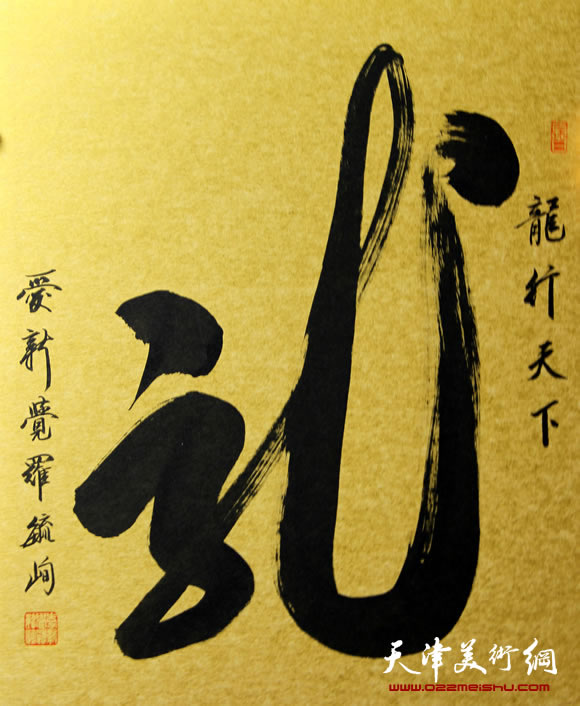 龍行天下
龍
愛新覺羅毓峋
天津美術網
www.022meishu.com